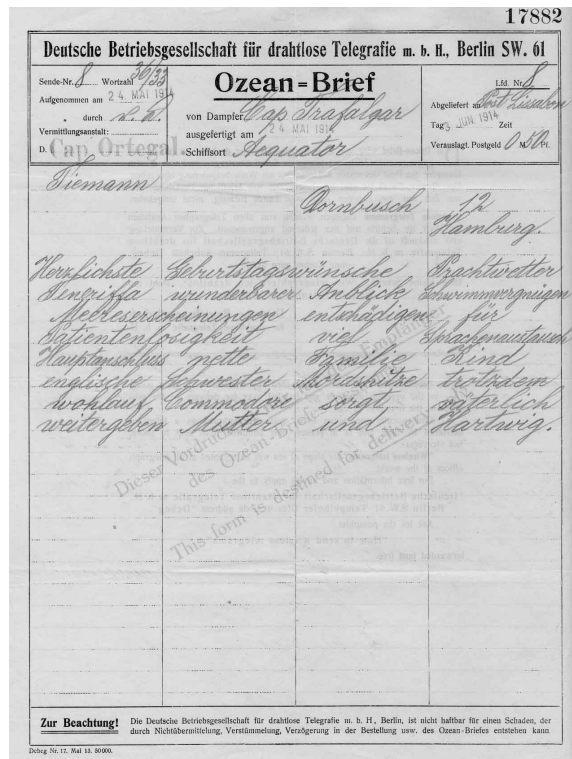 17882
Deutsche Betriebsgesellschaft für drahtlose Telegrafie m. b. H., Berlin SW. 61
Sende-Nr. 8 Wortzahl 36/33
Aufgenommen am 24. MAI 1914
" durch
Vermittlungsanstalt:
D. Cap Ortegal.
Ozean=Brief
von Dampfer Cap Trafalgar
ausgefertigt am 24. MAI 1914
Schiffsort Aequator
Lfd. Nr. 8
Abgeliefert an Post Lissabon
Tag 3 JUN. 1914 Zeit
Verauslagt. Postgeld 0 M. 50 Pf.
Tiemann Dornbusch 12
Hamburg.
Herzlichste Geburtstagswünsche Prachtwetter
Teneriffa wunderbarer Anblick Schwimmvergnügen
Meereserscheinungen entschädigen für
Patientenlosigkeit viel Sprachenaustausch
Hauptanschluss nette Familie Kind
englische Schwester Mordshitze trotzdem
wohlauf Commodore sorgt väterlich
weitergeben Mutter und Hartwig.
Dieser Vordruck Empfänger
des Ozean-Briefes
This form is destined for delivery
Zur Beachtung! Die Deutsche Betriebsgesellschaft für drahtlose Telegrafie m. b. H., Berlin, ist nicht haftbar für einen Schaden, der
durch Nichtübermittlung, Verstümmelung, Verzögerung in der Bestellung usw. des Ozean-Briefes entstehen kann
Debeg Nr. 17. Mai 13. 50000.